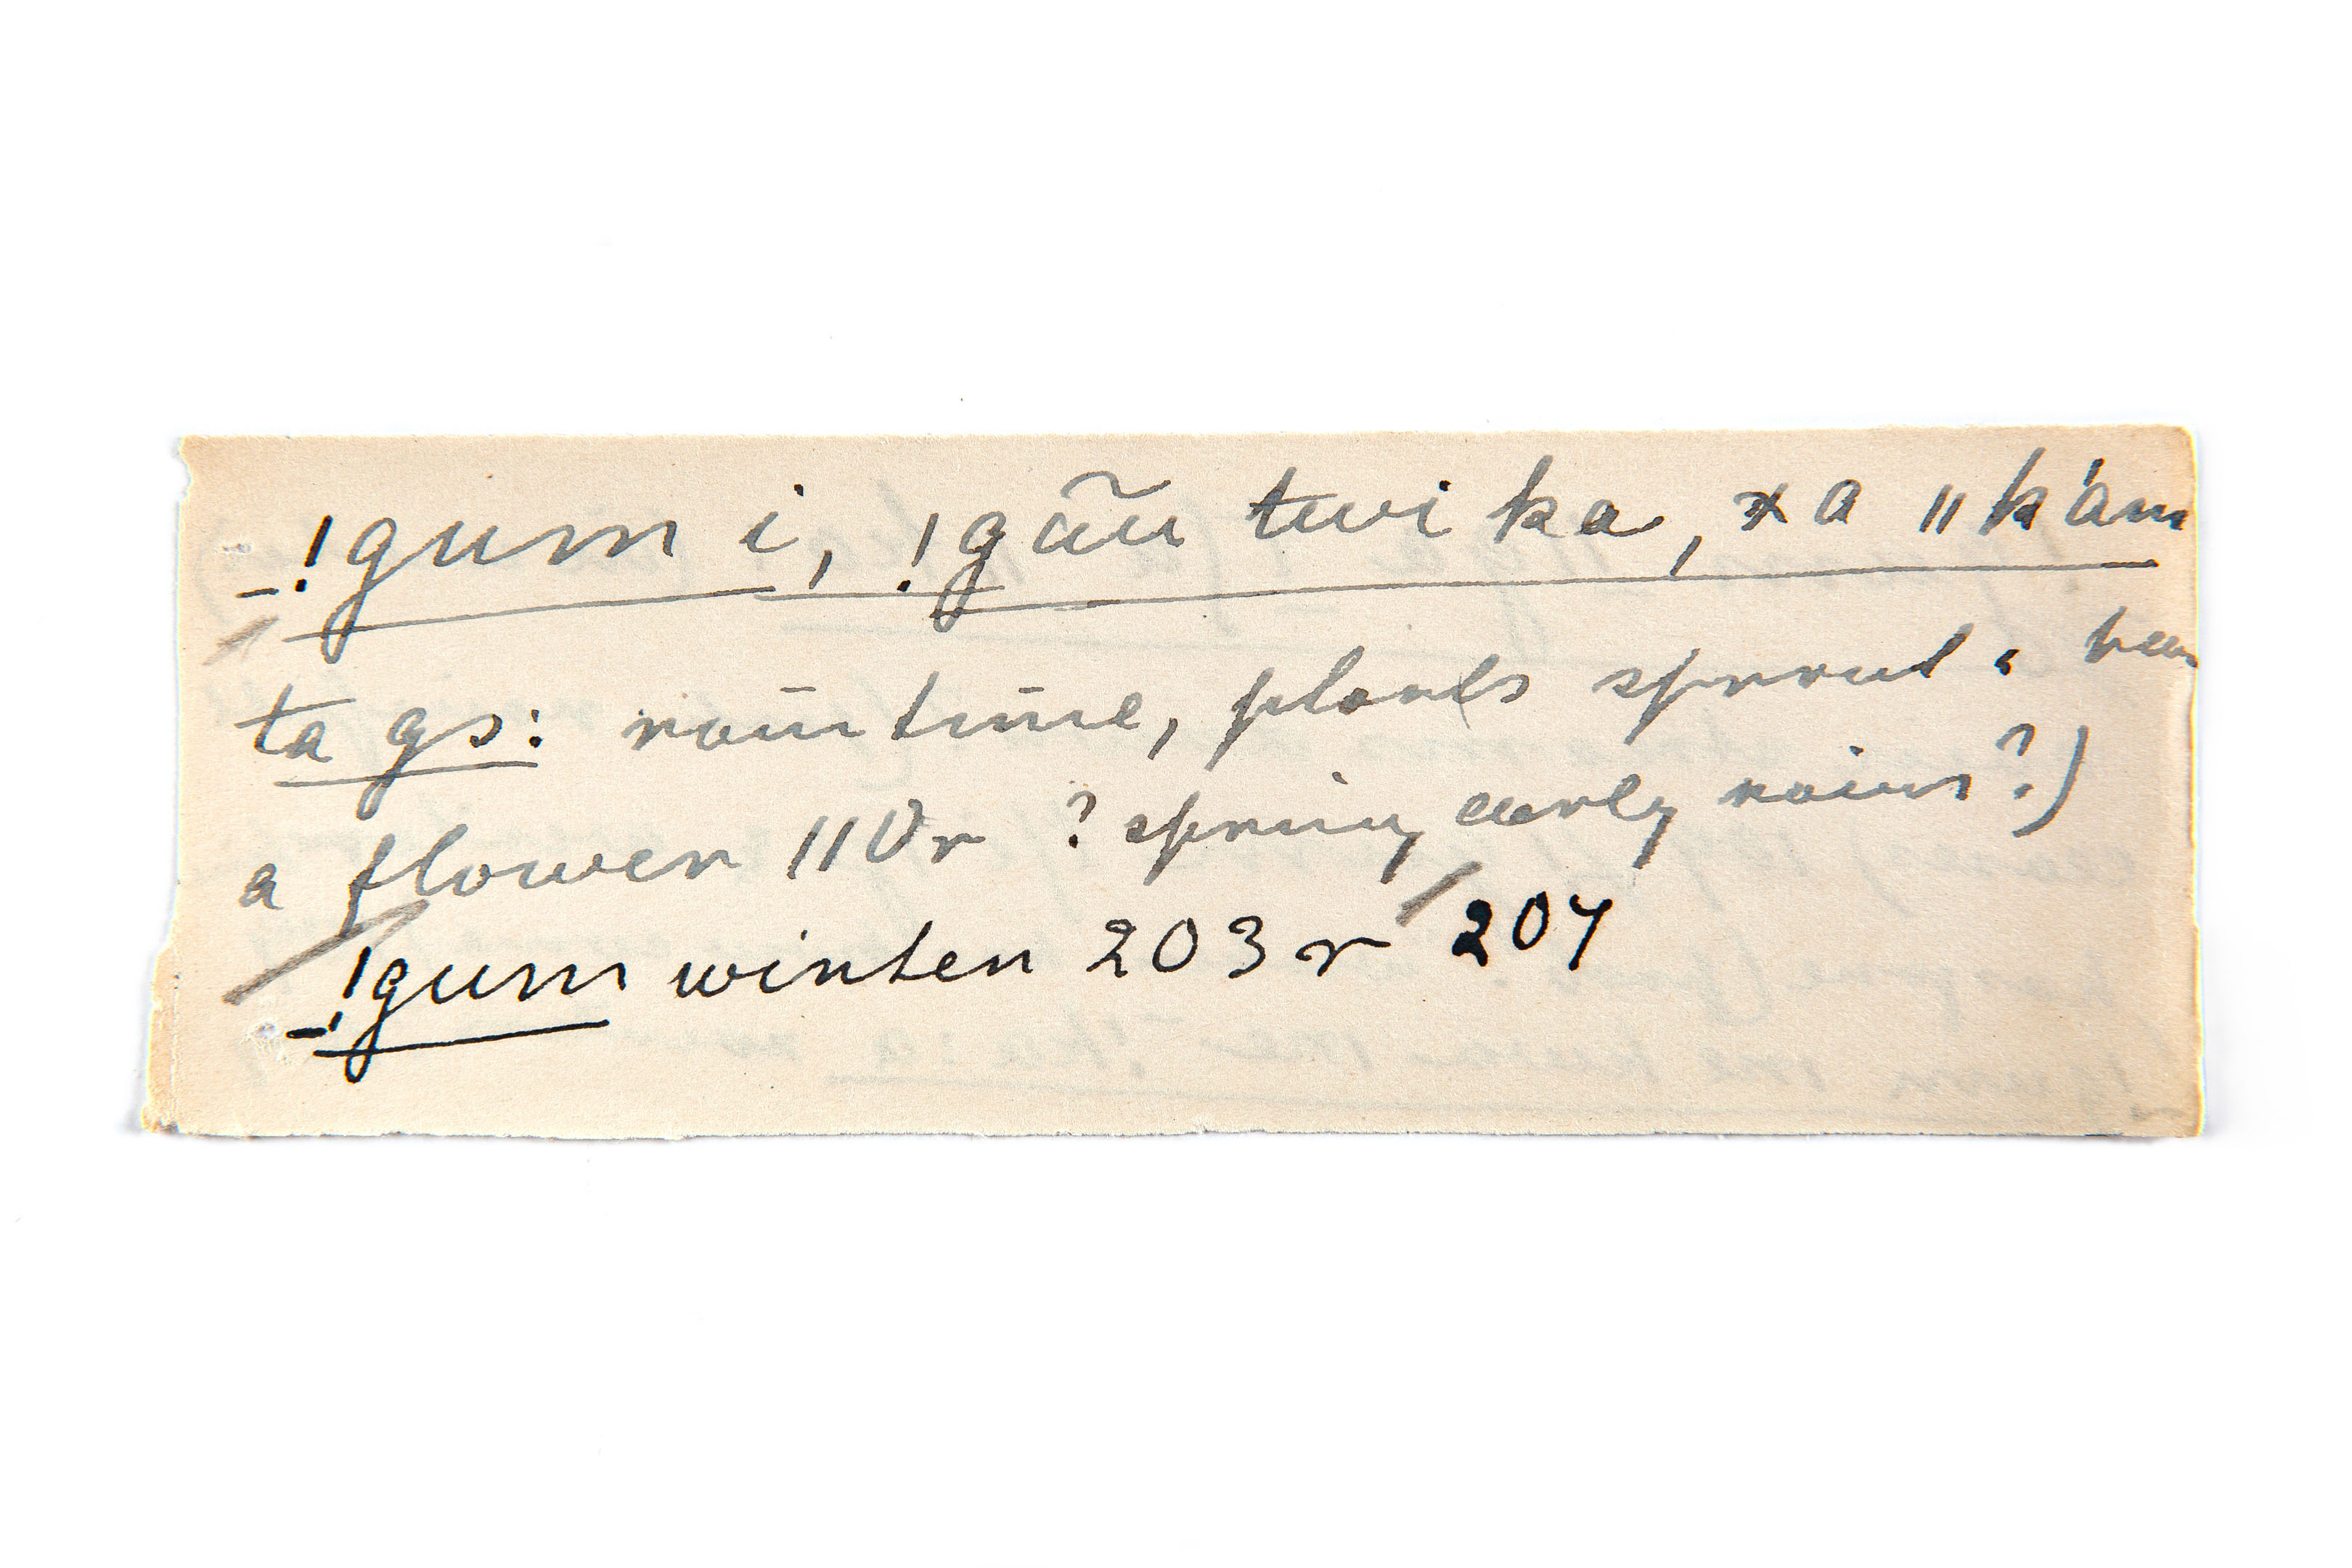 _!gum i, !gãũ twi ka, xa ǁk'am
ta gs: raintime, plants sprout &
a flower 110r ? spring early rains?)
_!gum winter 203r 204